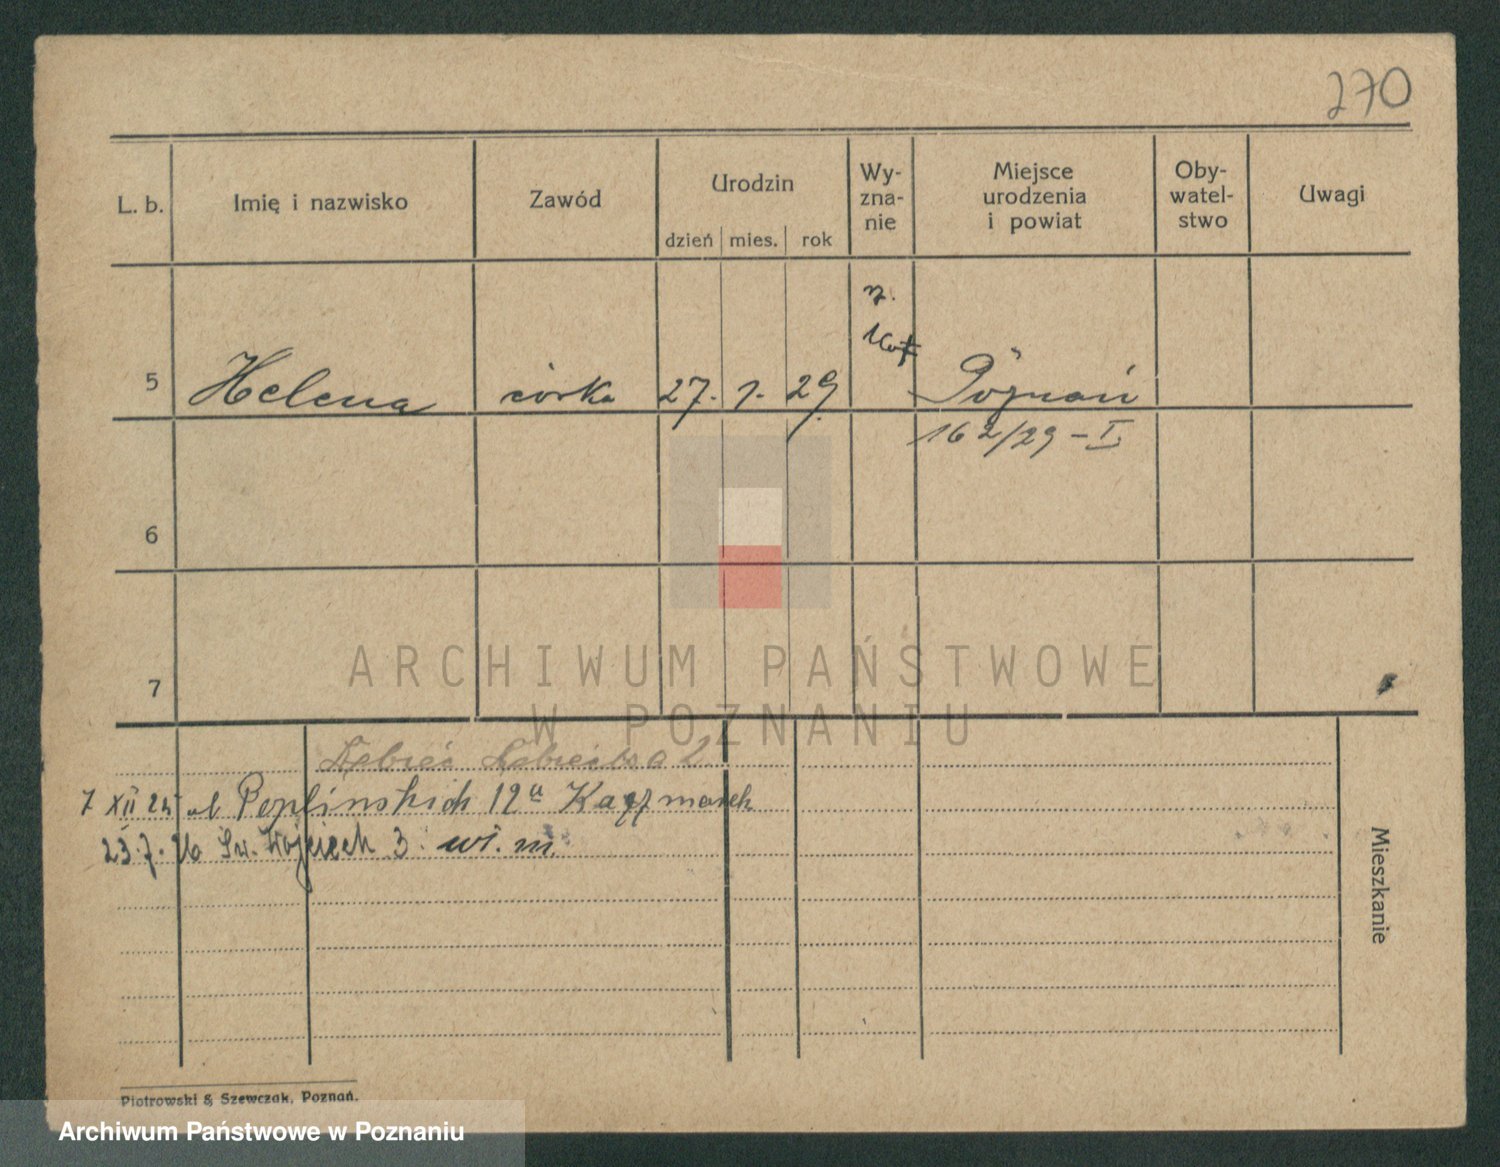 270
L. b. Imię i nazwisko Zawód Urodzin Wy-zna-nie Miejsce urodzenia i powiat Oby-watel-stwo Uwagi
dzień mies. rok
rz.
kat
5 Helena córka 27. 1. 29. Poznań
162/29 - I
6
7
ARCHIWUM PAŃSTWOWE
W POZNANIU
Dębiec
7 XII 25 ul Peplinskich 12a Kaczmarek
23.7.26 Św. Wojciech 3. wł. m.
Mieszkanie
Piotrowski & Szewczak, Poznań.
Archiwum Państwowe w Poznaniu